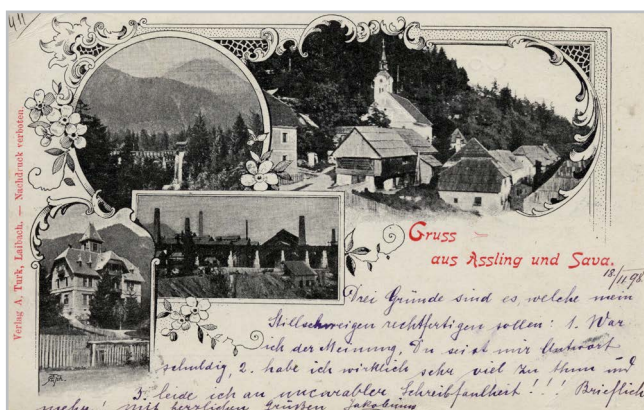 411
Verlag A. Turk, Laibach. — Nachdruck verboten
Gruss
aus Assling und Sava.
18/11 98
Drei Gründe sind es, welche mein
Stillschweigen rechtfertigen sollen: 1. War
ich der Meinung, Du seist mir Antwort
schuldig, 2. habe ich wirklich sehr viel zu thun und
3. leide ich an incurabler Schreibfaulheit!!! Brieflich
mehr! mit herzlichen Grüßen